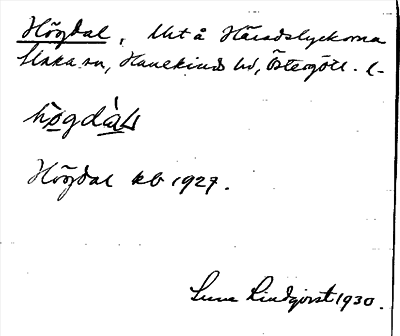 Högdal, Utå Häradslyckorna
Slaka sn, Hanekinds hd, Östergötl. l-
högdàL
Högdal kb 1927.
Sune Lindqvist 1930.